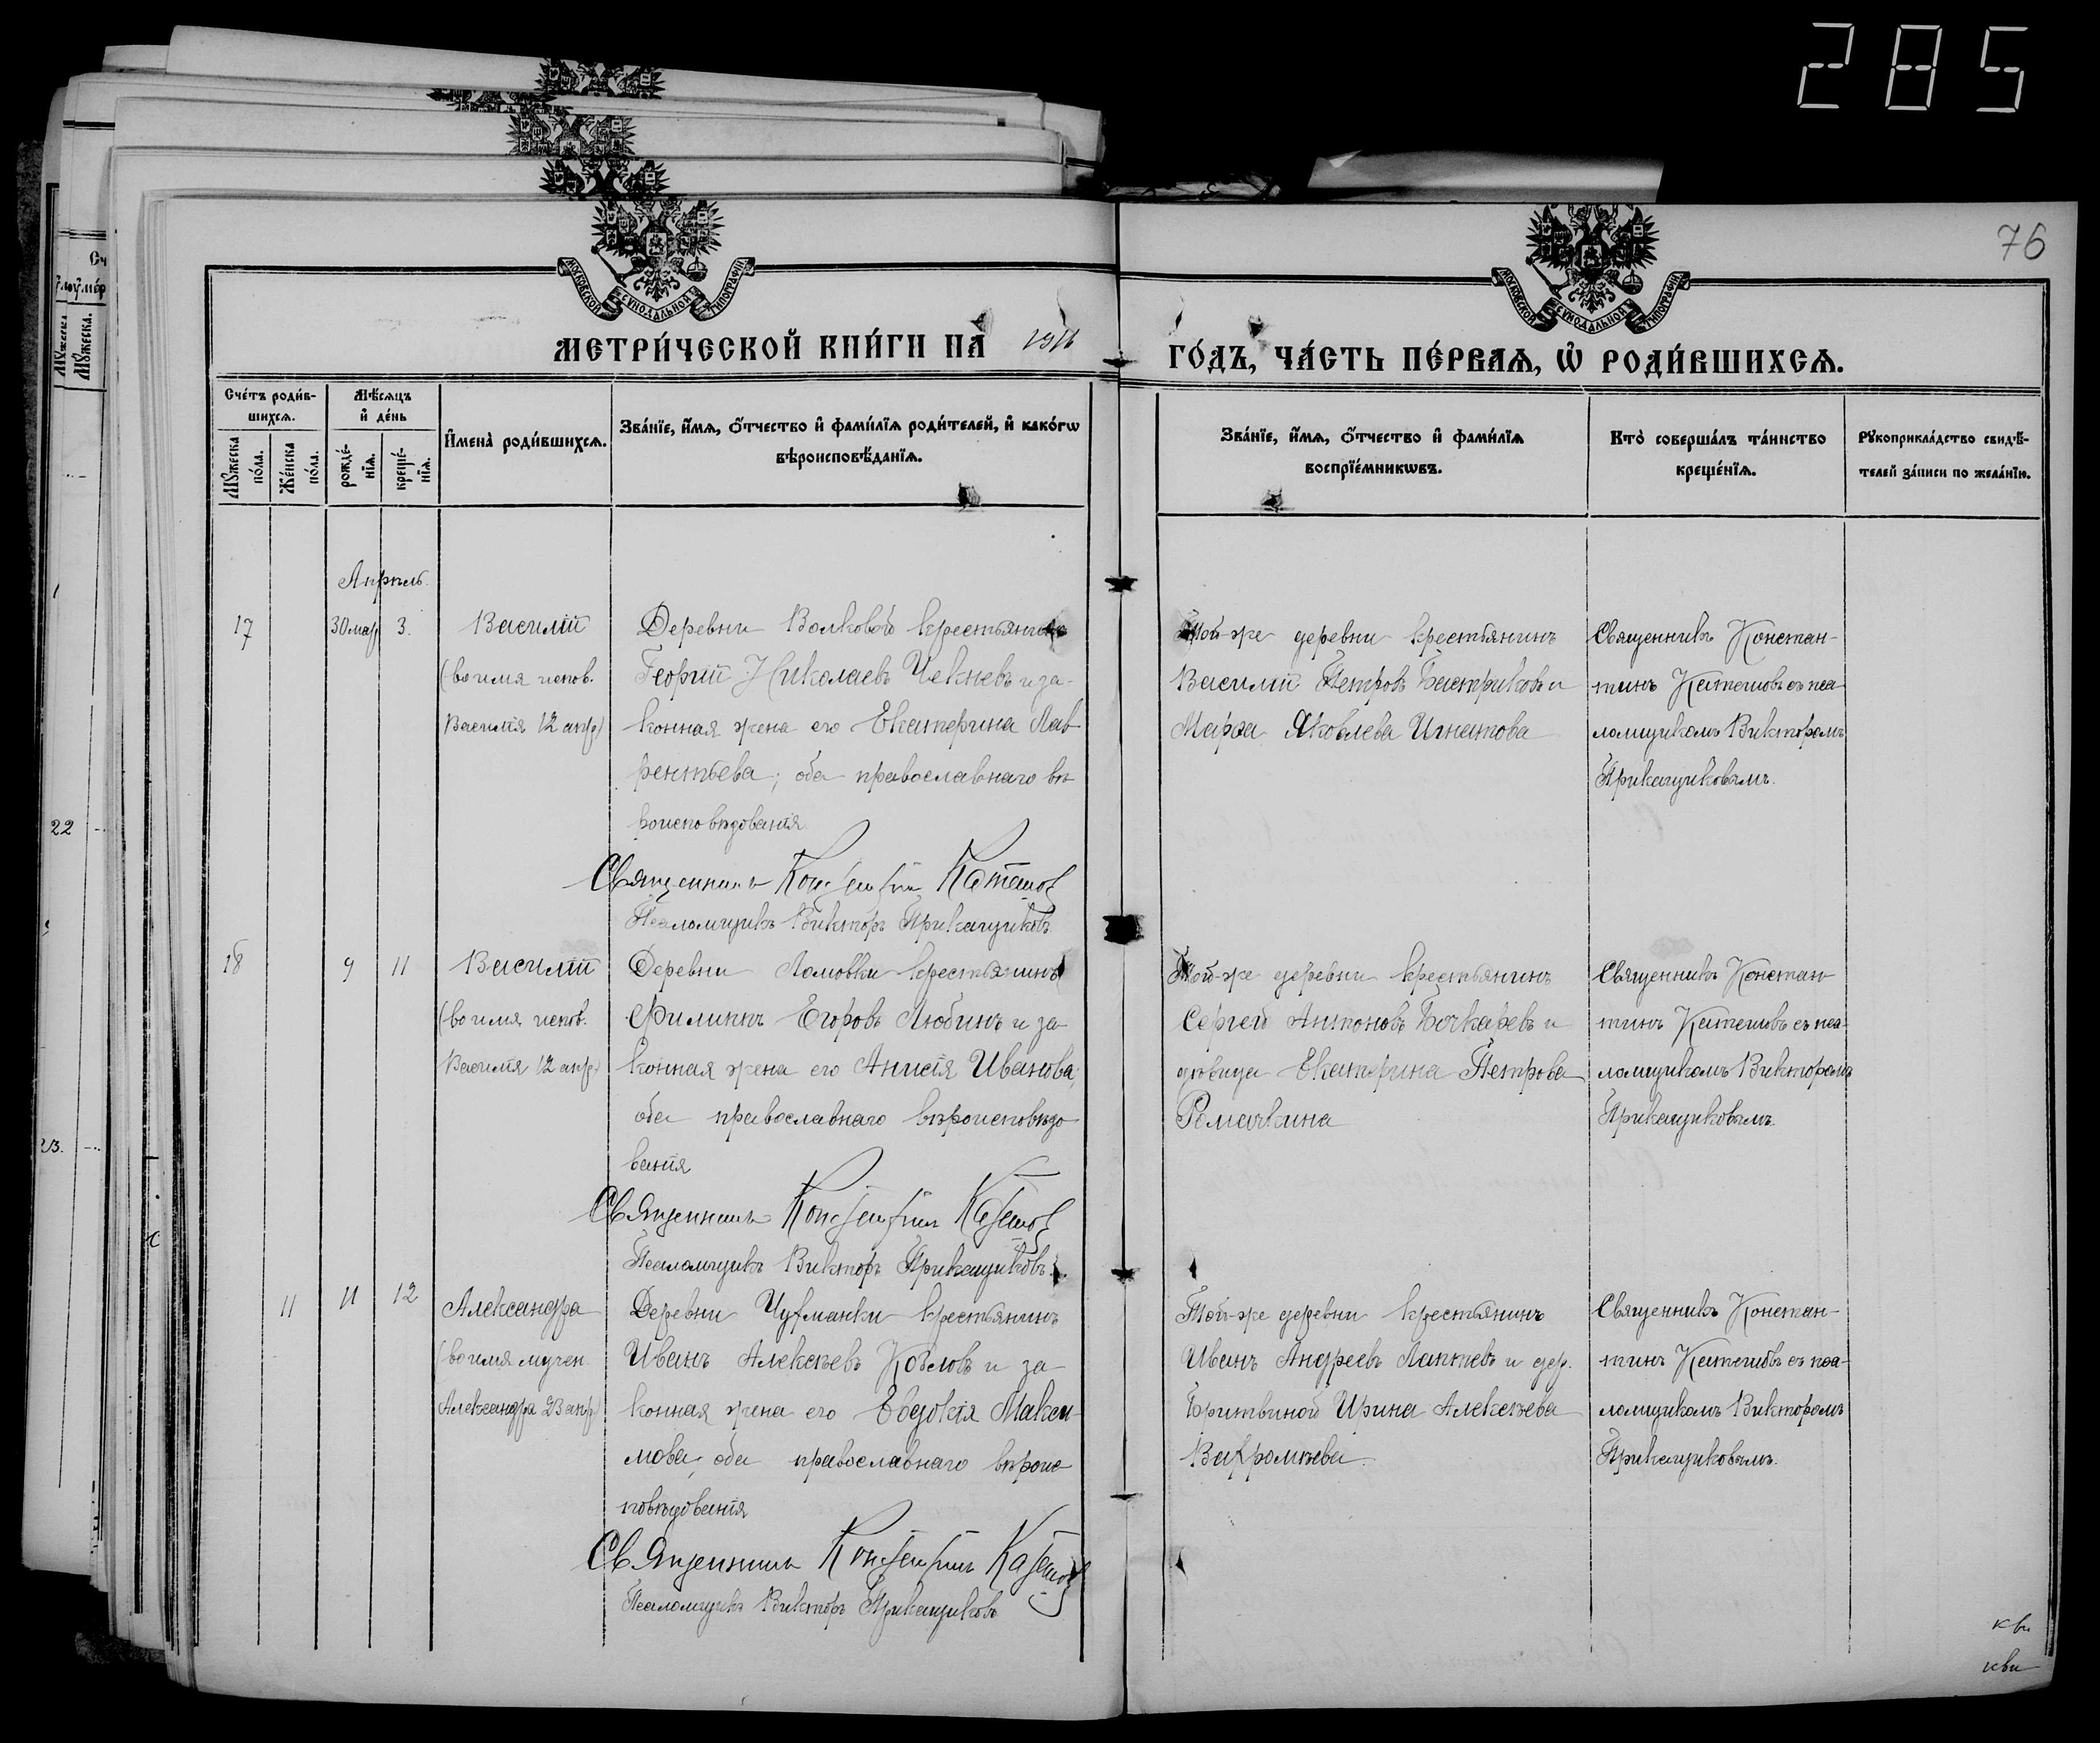 285
76
МОСКОВСКОЙ СѴНОДАЛЬНОЙ ТИПОГРАФІИ
МОСКОВСКОЙ СѴНОДАЛЬНОЙ ТИПОГРАФІИ
МЕТРИ́ЧЕСКОЙ КНИ́ГИ НА̀ 1911 ГО́ДЪ, ЧА́СТЬ ПЕ́РВАЯ, Ѡ҆ РОДИ́ВШИХСЯ.
Сче́тъ роди́в-
шихся.
Мѣ́сяцъ
и҆ де́нь
Мꙋ́жеска
по́ла.
Же́нска
по́ла.
рожде́-
нїя.
креще́-
нїя.
И҆мена̀ роди́вшихся.
Зва́нїе, и҆́мя, ѻ҆́тчество и҆ фами́лїя роди́телей, и҆ како́гѡ
вѣроисповѣ́данїя.
Зва́нїе, и҆́мя, ѻ҆́тчество и҆ фами́лїя
воспрїе́мникѡвъ.
Кто̀ соверша́лъ та́инство
креще́нїя.
Рꙋкоприкла́дство свидѣ́-
телей за́писи по жела́нїю.
Апрѣль.
17
30 мар
3.
Василій
(во имя испов.
Василія 12 апр.)
Деревни Волковой крестьянинъ
Георгій Николаевъ Чекневъ и за-
конная жена его Екатерина Лав-
рентьева; оба православнаго вѣ-
роисповѣдованія.
Священникъ Константинъ Катешов
Псаломщикъ Викторъ Прикащиковъ.
Той-же деревни крестьянинъ
Василій Петровъ Бастриковъ и
Марѳа Яковлева Игнатова
Священникъ Констан-
тинъ Катешовъ съ пса-
ломщикомъ Викторомъ
Прикащиковымъ.
18
9
11
Василій
(во имя испов.
Василія 12 апр.)
Деревни Ломовки крестьянинъ
Филиппъ Егоровъ Любинъ и за-
конная жена его Анисія Иванова,
оба православнаго вѣроисповѣдо-
ванія
Священникъ Константинъ Катешов
Псаломщикъ Викторъ Прикащиковъ.
Той-же деревни крестьянинъ
Сергей Антоновъ Бочкаревъ и
дѣвица Екатерина Петрова
Ромачкина
Священникъ Констан-
тинъ Катешовъ съ пса-
ломщикомъ Викторомъ
Прикащиковымъ.
11
11
12
Александра
(во имя мучен.
Александра 23 апр.)
Деревни Чуфманки крестьянинъ
Иванъ Алексѣевъ Козловъ и за-
конная жена его Евдокія Макси-
мова, оба православнаго вѣроис-
повѣдованія
Священникъ Константинъ Катешов
Псаломщикъ Викторъ Прикащиковъ
Той-же деревни крестьянинъ
Иванъ Андреевъ Лаптевъ и дер.
Бритвиной Ирина Алексѣева
Вахромѣева.
Священникъ Констан-
тинъ Катешовъ съ пса-
ломщикомъ Викторомъ
Прикащиковымъ.
22
23.